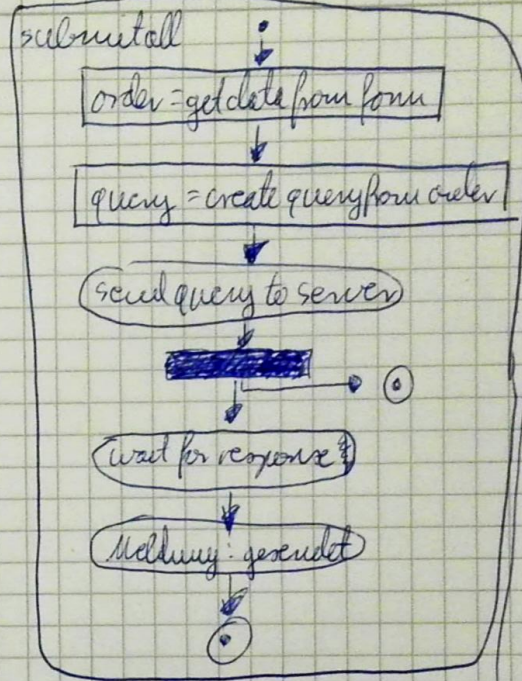 submitall
order = getdata from form
query = create query from order
send query to server
wait for response
Meldung: gesendet